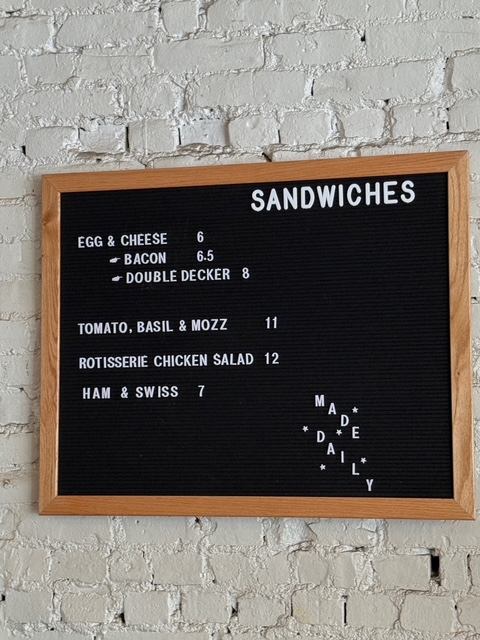 SANDWICHES
EGG & CHEESE 6
☛ BACON 6.5
☛ DOUBLE DECKER 8
TOMATO, BASIL & MOZZ 11
ROTISSERIE CHICKEN SALAD 12
HAM & SWISS 7
MADE
DAILY